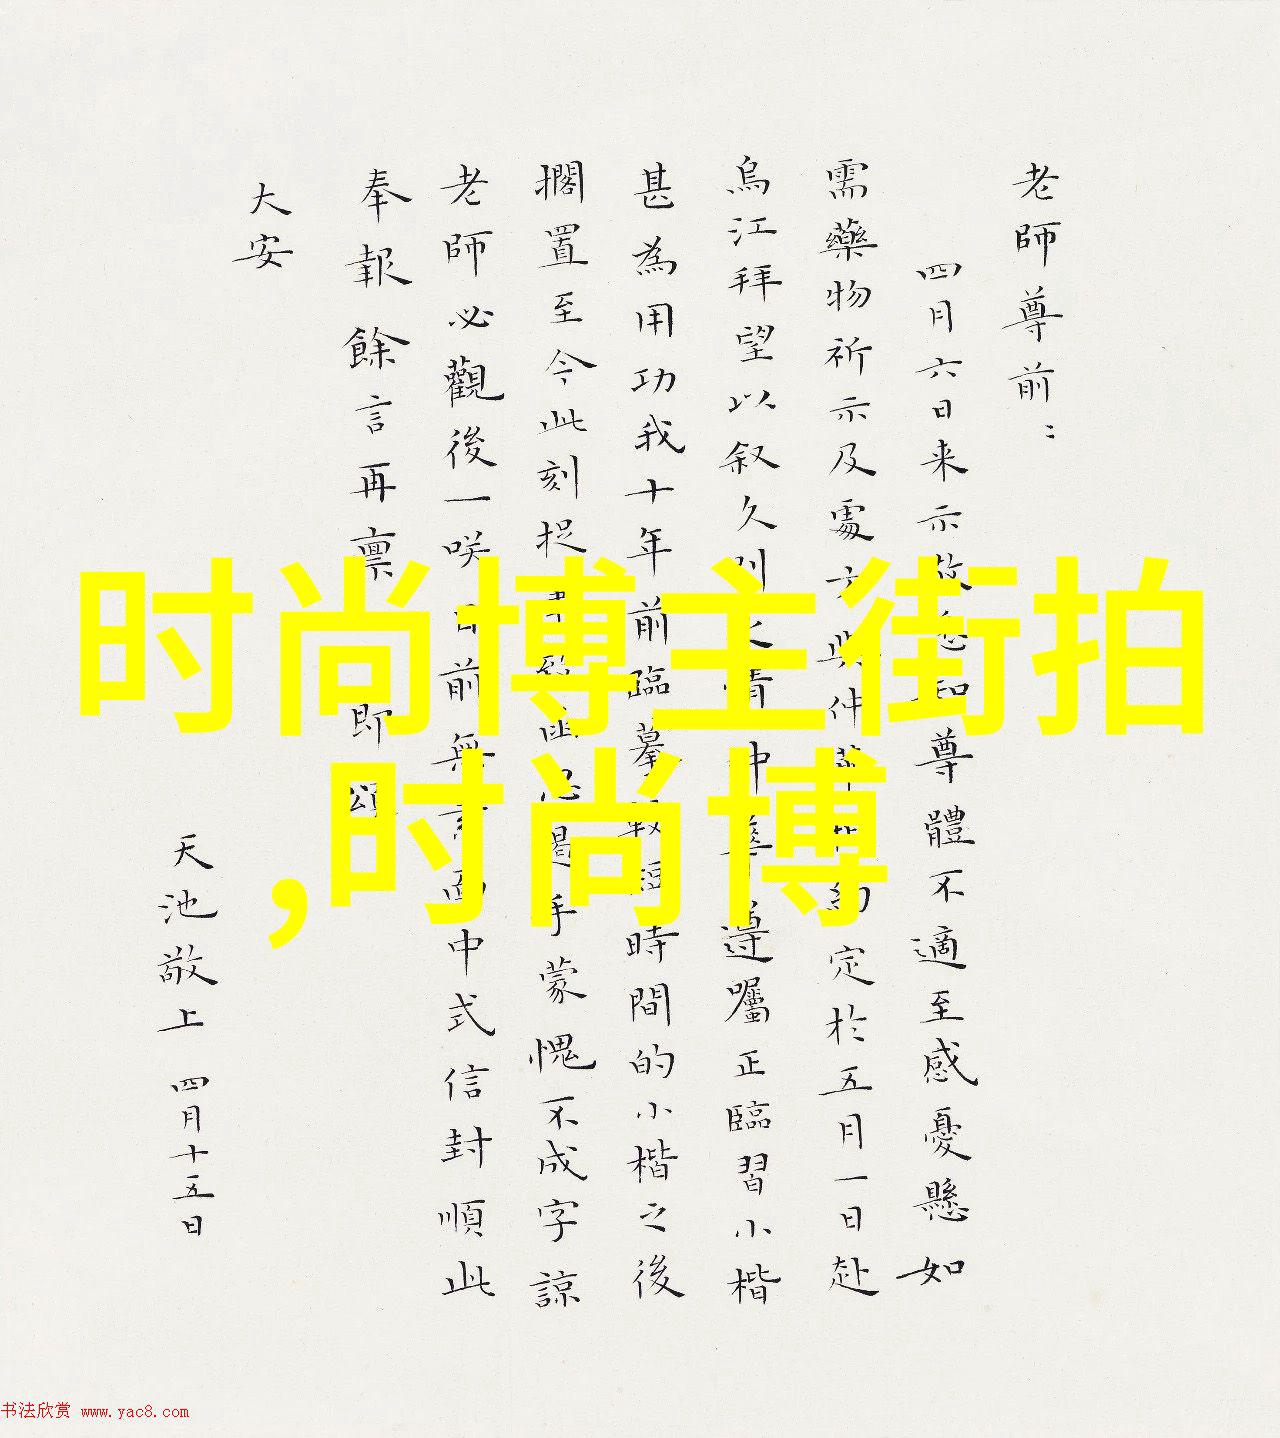 老師尊前:
四月六日来示 尊體不適至感憂懸如
需藥物祈示及處 仲 約定於五月一日赴
烏江拜望以叙久别之情仲華遵囑正臨習小楷
甚為用功我十年前臨摹較短時間的小楷之後
擱置至今此刻捉 手蒙愧不成字諒
老師必觀後一咲目前無 中式信封順此
奉報餘言再禀 即頌
大安
天池敬上 四月十五日
时尚博主街拍
,时尚博
书法欣赏 www.yac8.com